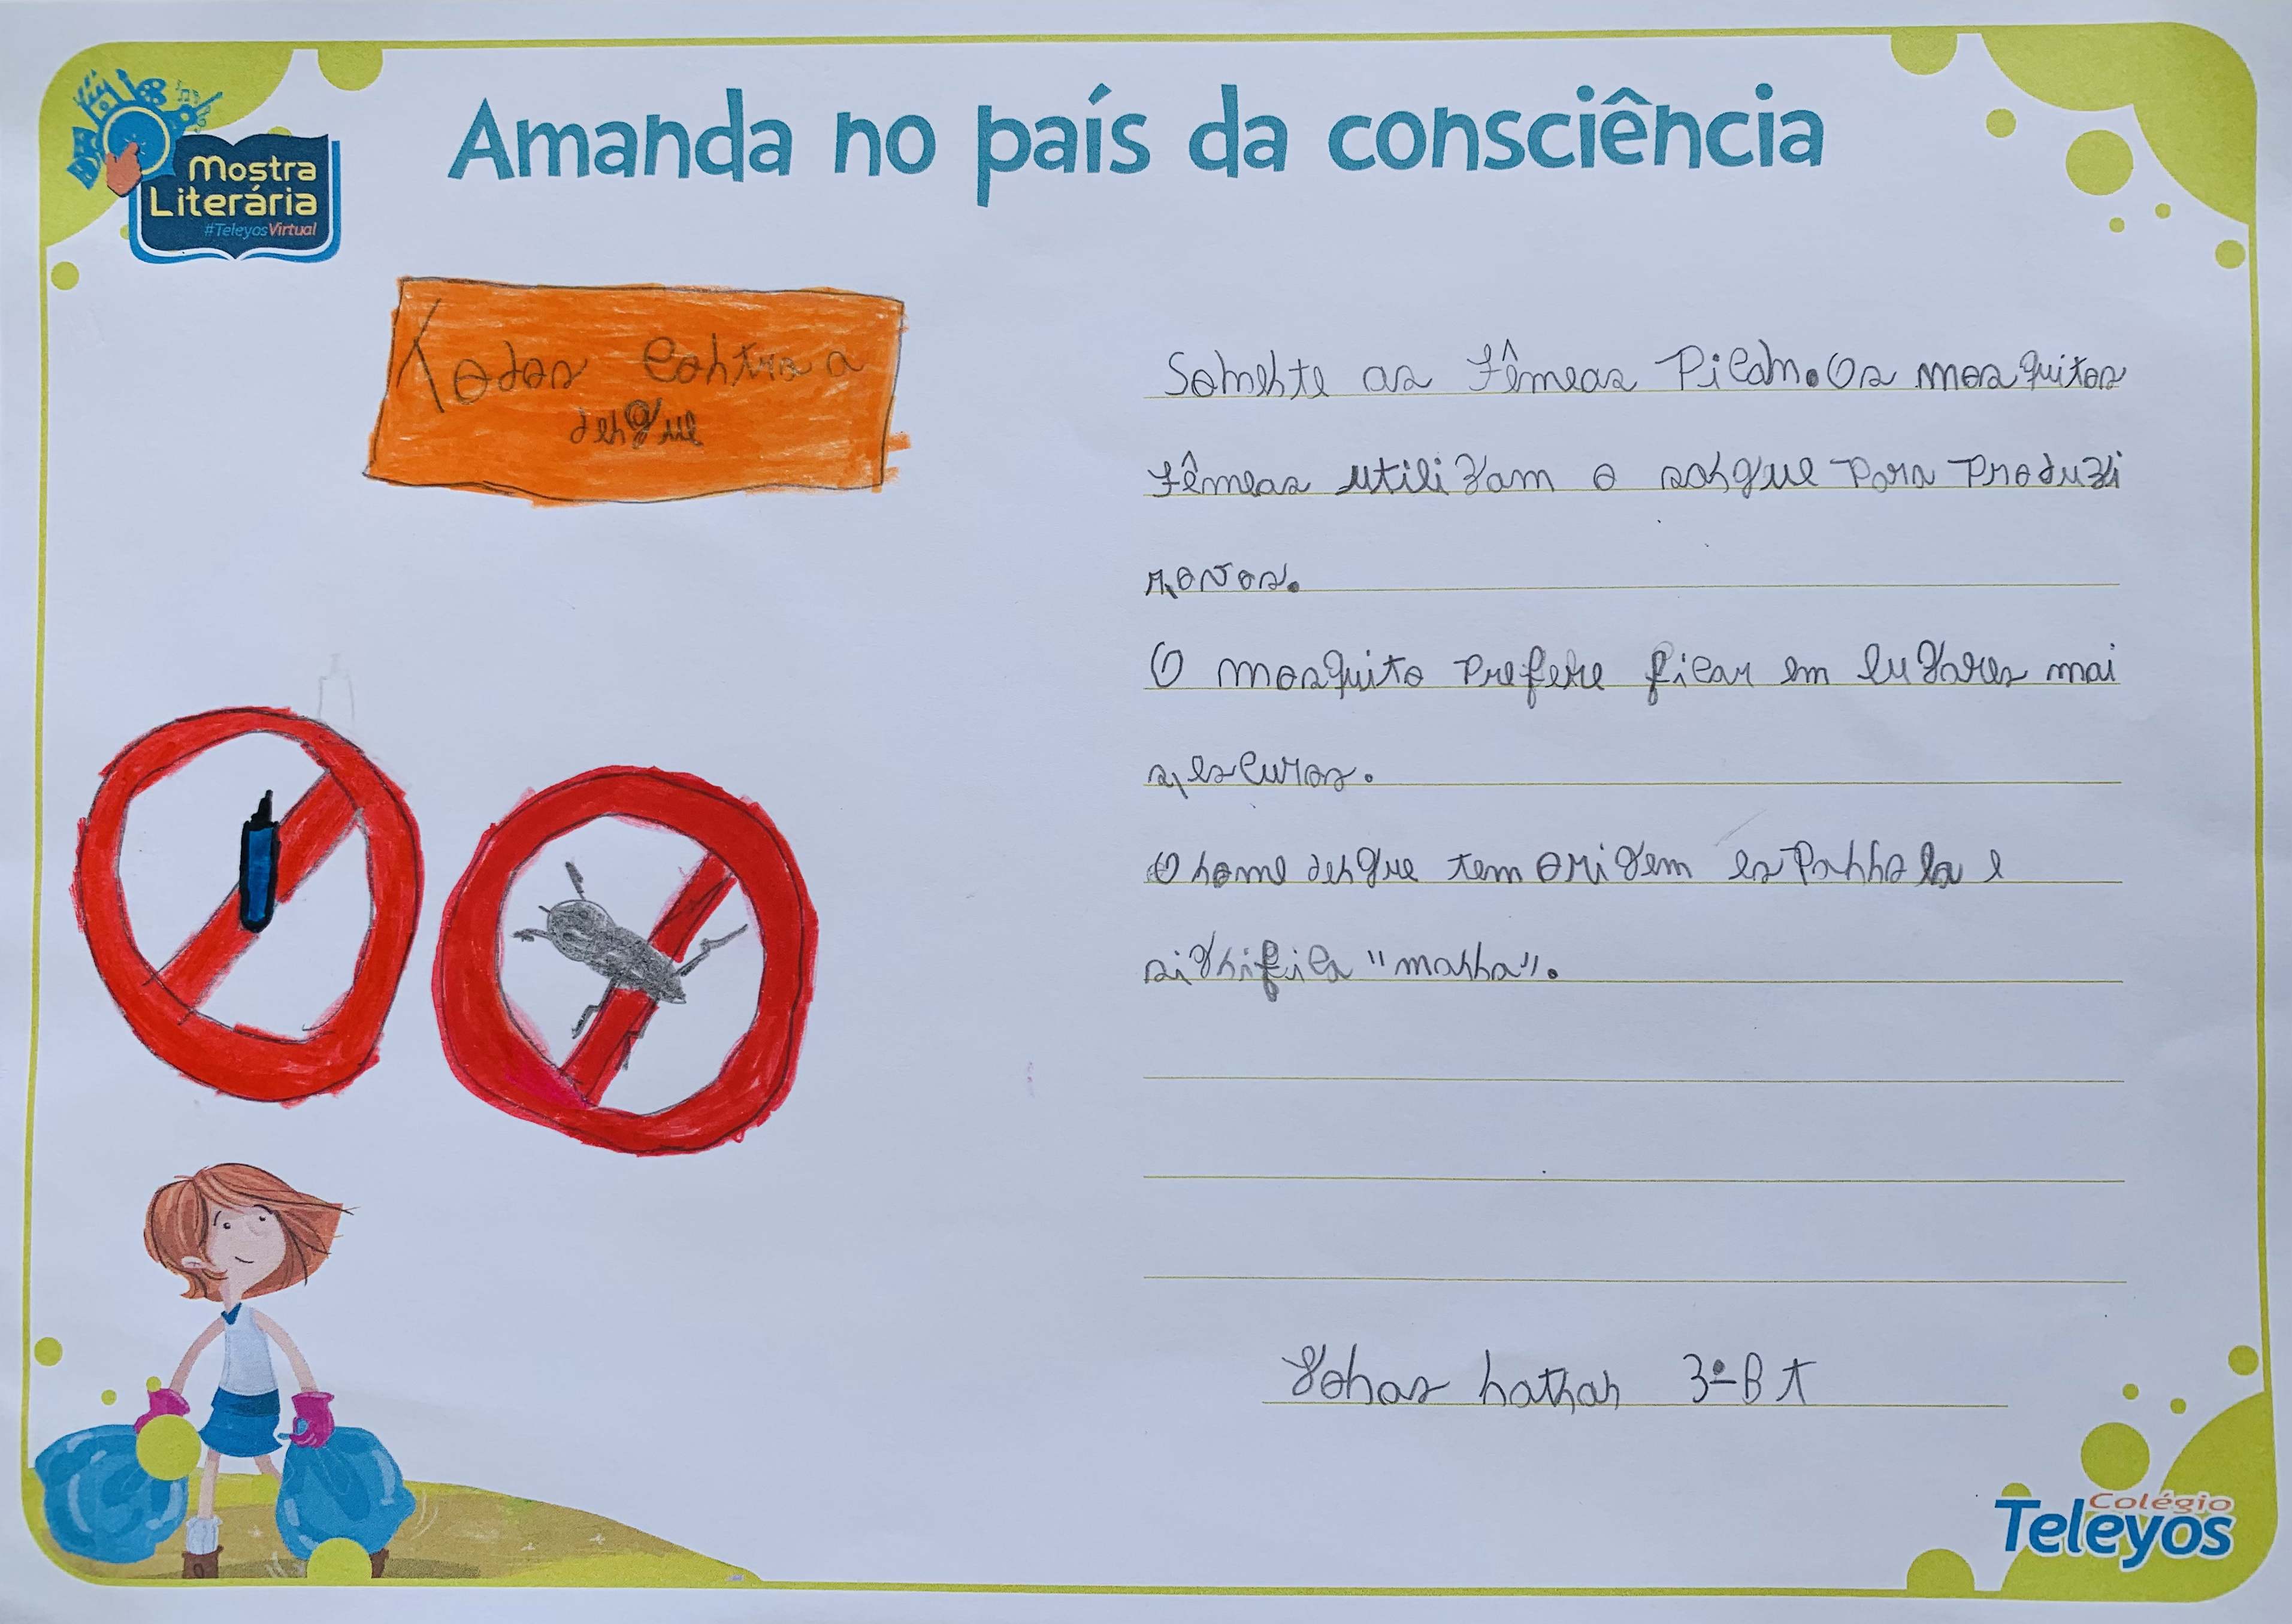 Amanda no país da consciência
Mostra
Literária
#TeleyosVirtual
Todos contra a
dengue
Somente as fêmeas picam. Os mosquitos
fêmeas utilizam o sangue para produzi
r, ovos.
O mosquito prefere ficar em lugares mai
s, escuros.
O nome dengue tem origem espanhola e
significa "manha".
Jonas nathan 3º B T
Colégio
Teleyos